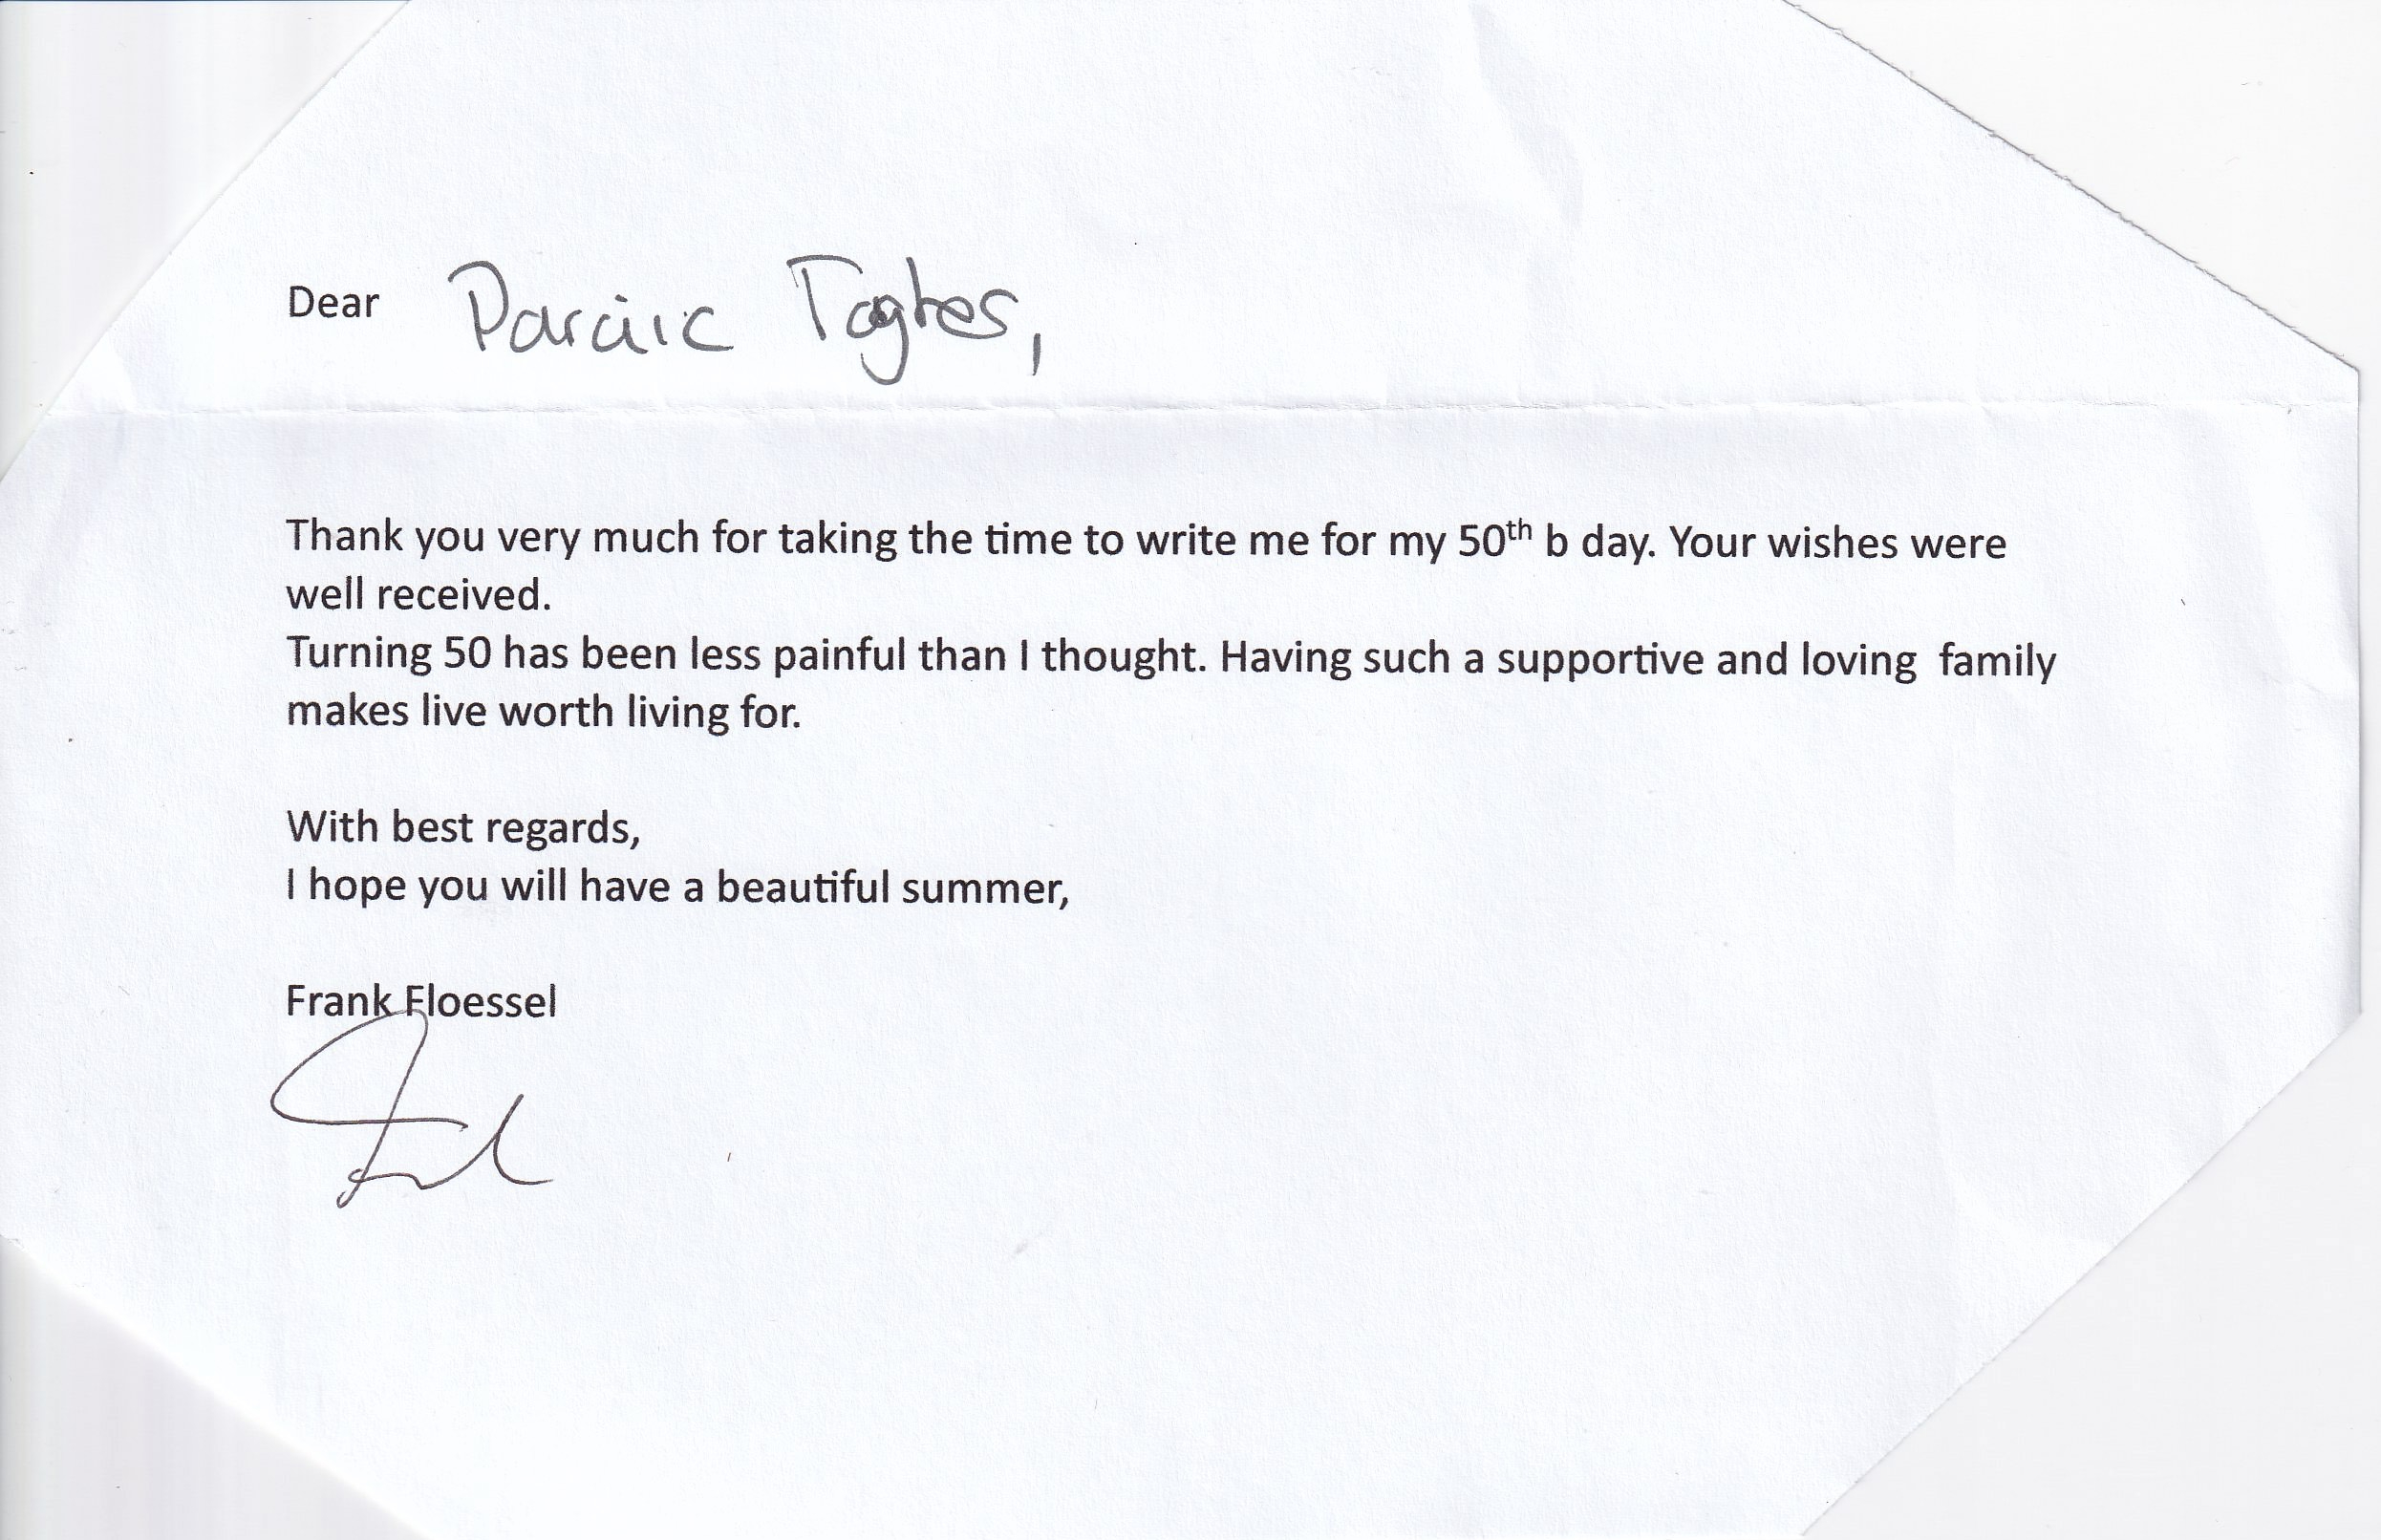 Dear Paraic Toghes,
Thank you very much for taking the time to write me for my 50th b day. Your wishes were
well received.
Turning 50 has been less painful than I thought. Having such a supportive and loving  family
makes live worth living for.
With best regards,
I hope you will have a beautiful summer,
Frank Floessel